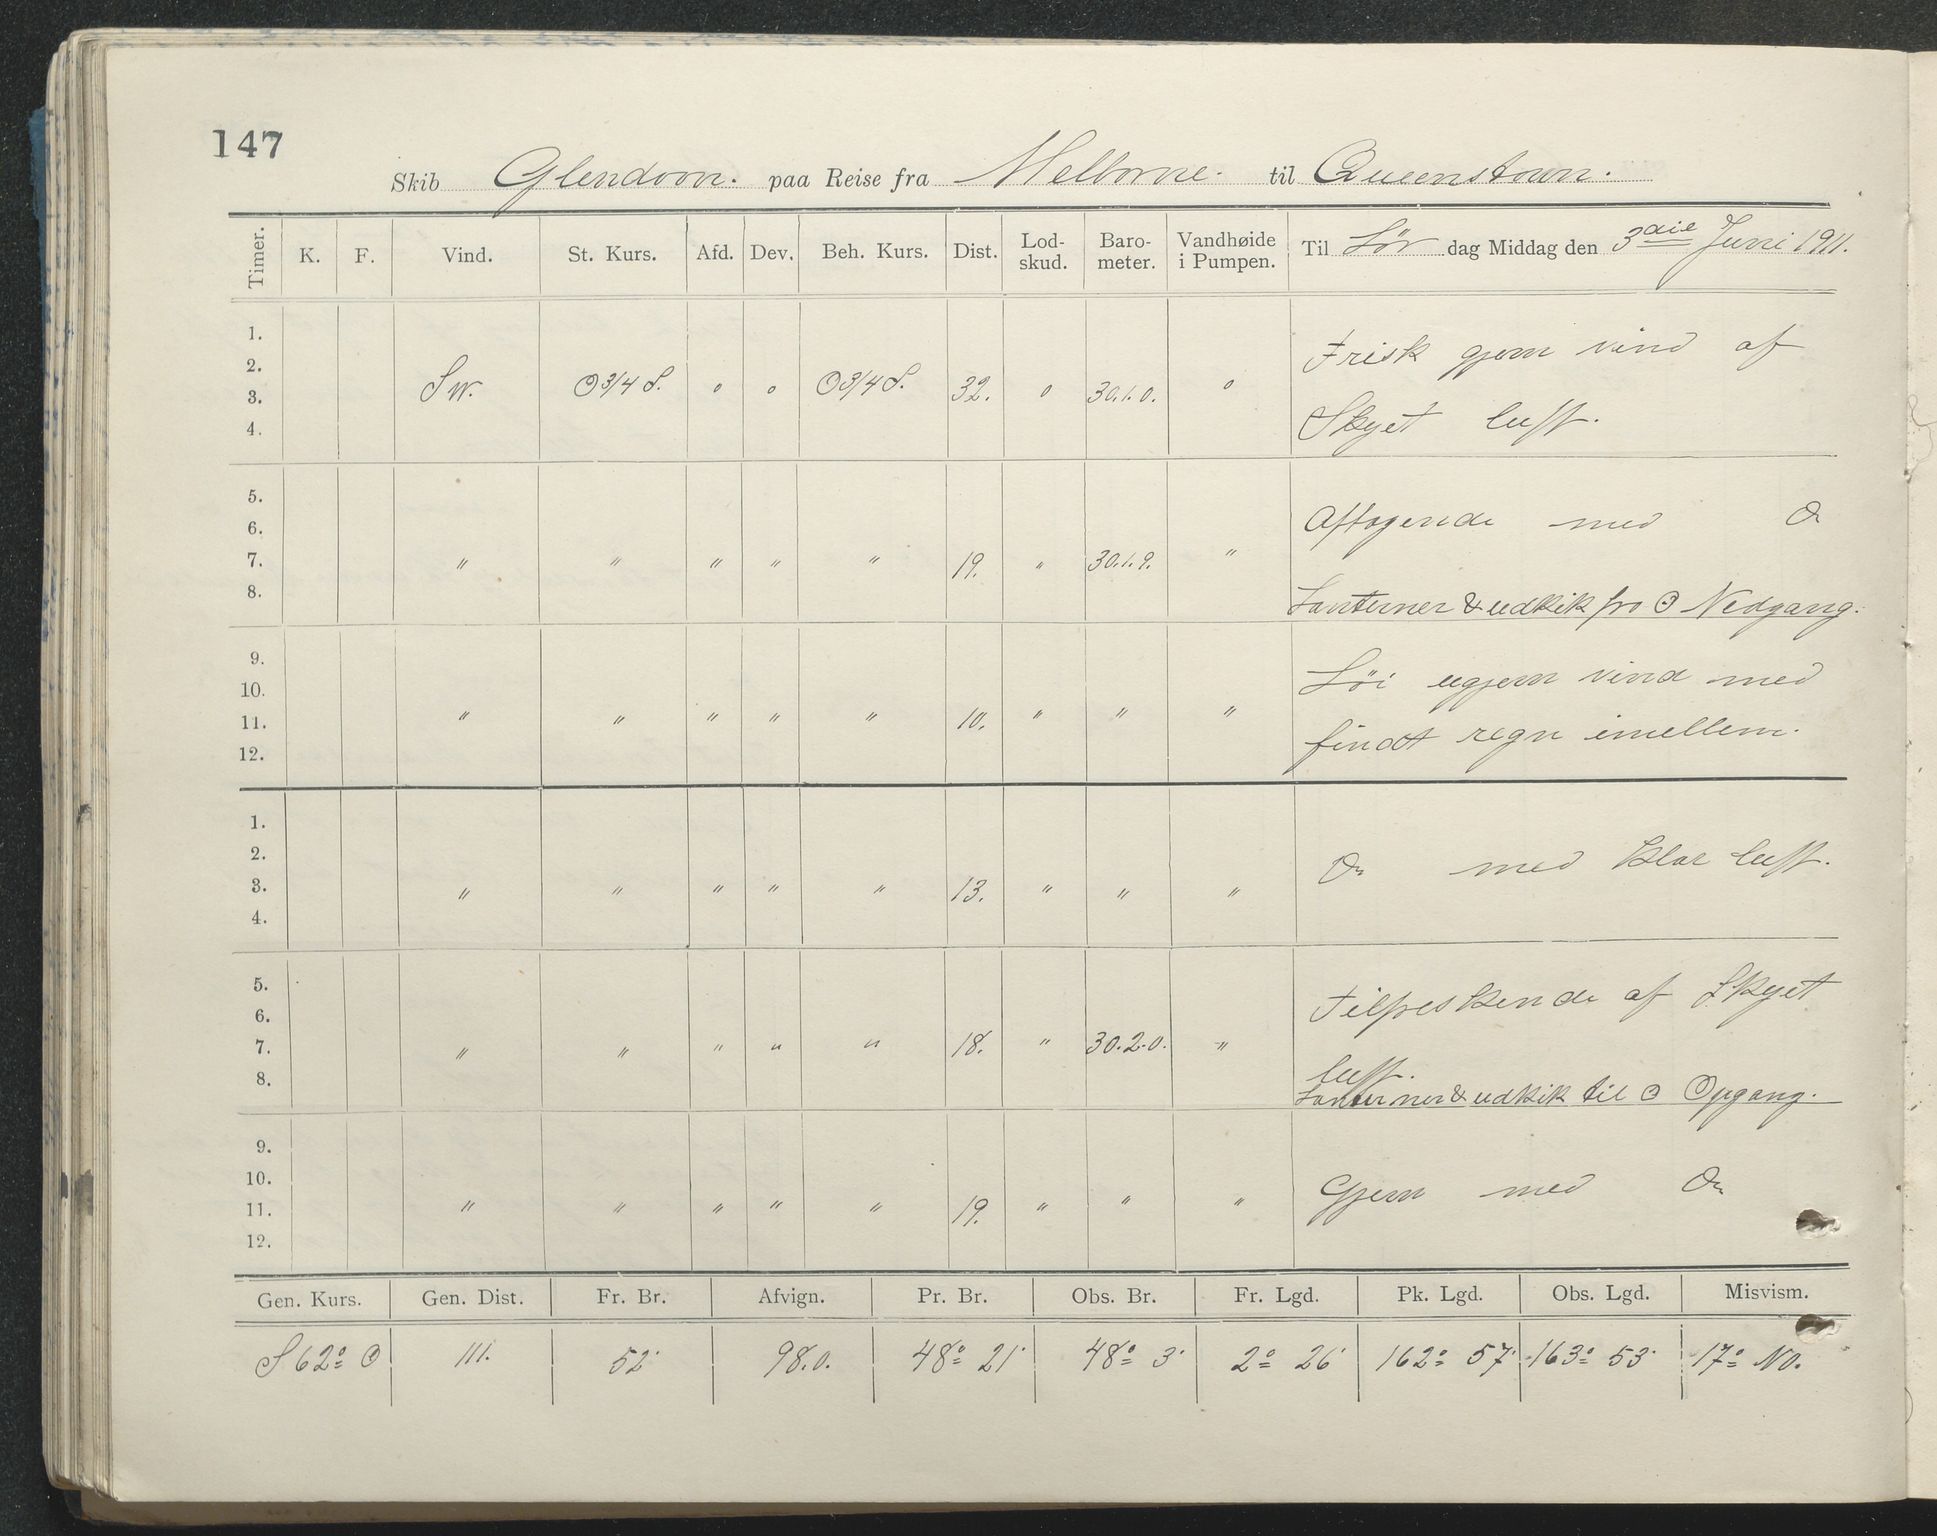 147
Skib Glendoon. paa Reise fra Melborne. til Queenstown.
Timer. K. F. Vind. St. Kurs. Afd. Dev. Beh. Kurs. Dist. Lod-skud. Baro-meter. Vandhøide i Pumpen. Til Lör dag Middag den 3die Juni 1911.
1.
2.
3.
4.
SW. O 3/4 S. o o O 3/4 S. 32. o 30.1.0. o
Frisk gjern vind af
Skyet luft.
5.
6.
7.
8.
" " " " " 19. " 30.1.9. "
Aftagende med Do
Lanterner & udkik fra ☉ Nedgang.
9.
10.
11.
12.
" " " " " 10. " " "
Löi ugjern vind med
findt regn imellem.
1.
2.
3.
4.
" " " " " 13. " " "
Do med klar luft.
5.
6.
7.
8.
" " " " " 18. " 30.2.0. "
Tilfreskende af Skyet
luft.
Lanterner & udkik til ☉ Opgang.
9.
10.
11.
12.
" " " " " 19. " " "
Gjern med Do
Gen. Kurs. Gen. Dist. Fr. Br. Afvign. Pr. Br. Obs. Br. Fr. Lgd. Pk. Lgd. Obs. Lgd. Misvism.
S 62° O 111. 52' 98.0. 48° 21' 48° 3' 2° 26' 162° 57' 163° 53' 17° NO.